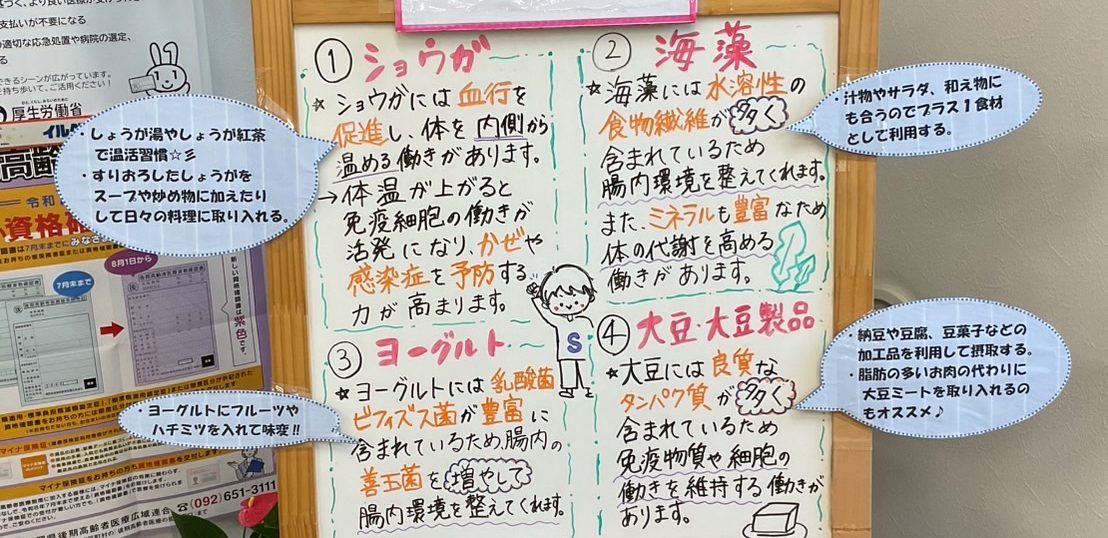 ① ショウガ
☆ショウガには血行を
促進し、体を内側から
温める働きがあります。
→体温が上がると
免疫細胞の働きが
活発になり、かぜや
感染症を予防する
力が高まります。
・しょうが湯やしょうが紅茶
で温活習慣☆彡
・すりおろしたしょうがを
スープや炒め物に加えたり
して日々の料理に取り入れる。
② 海藻
☆海藻には水溶性の
食物繊維が多く
含まれているため
腸内環境を整えてくれます。
また、ミネラルも豊富なため
体の代謝を高める
働きがあります。
・汁物やサラダ、和え物に
も合うのでプラス1食材
として利用する。
③ ヨーグルト
★ヨーグルトには乳酸菌
ビフィズス菌が豊富に
含まれているため、腸内の
善玉菌を増やして
腸内環境を整えてくれます。
・ヨーグルトにフルーツや
ハチミツを入れて味変!!
S
④ 大豆・大豆製品
★大豆には良質な
タンパク質が多く
含まれているため
免疫物質や細胞の
働きを維持する働きが
あります。
・納豆や豆腐、豆菓子などの
加工品を利用して摂取する。
・脂肪の多いお肉の代わりに
大豆ミートを取り入れるの
もオススメ♪
支払いが不要になる
適切な応急処置や病院の選定、
できるシーンが広がっています。
持ち歩いて、ご活用ください!
厚生労働省
高齢
令和
資格確
8月1日から
7月末まで
新しい資格確認書は
紫色
です。
マイナ保険証をお持ちの方も資格確認書
(092)651-3111
県後期高齢者医療広域連合